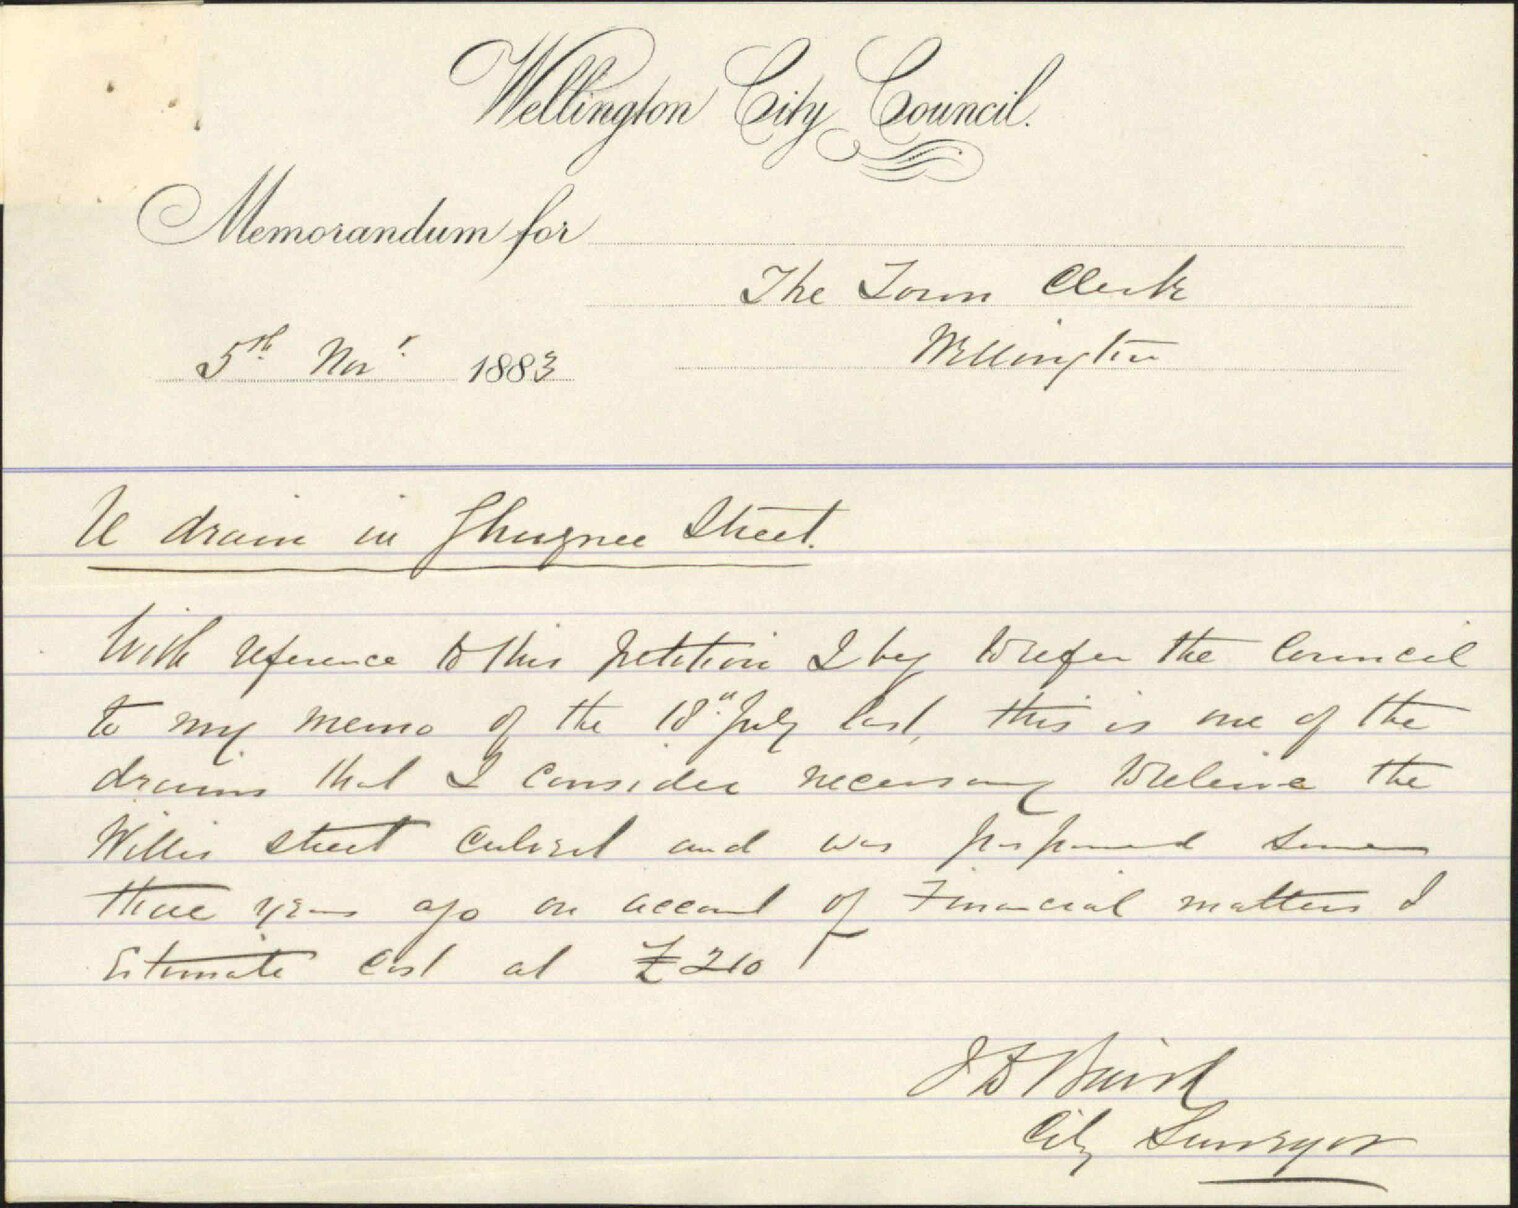 Wellington City Council.
Memorandum for
The Town Clerk
Wellington
5th Novr. 1883
Re drain in Ghuznee Street.
With reference to this petition I beg to refer the Council
to my memo of the 18th July last, this is one of the
drains that I consider necessary to relieve the
Willis Street Culvert and was proposed some
three years ago on account of Financial matters I
Estimate Cost at £210
J D Baird
City Surveyor